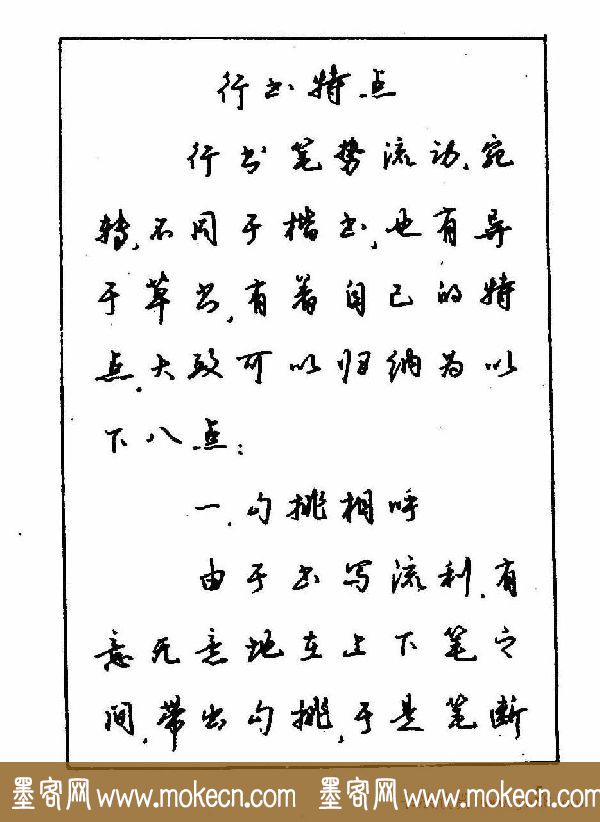 行书特点
行书笔势流动、宛
转,不同于楷书,也有异
于草书,有着自己的特
点.大致可以归纳为以
下八点:
一.勾挑相呼
由于书写流利.有
意无意地在上下笔之
间,带出勾挑,于是笔断
墨客网 www.mokecn.com 墨客网 www.mokecn.com